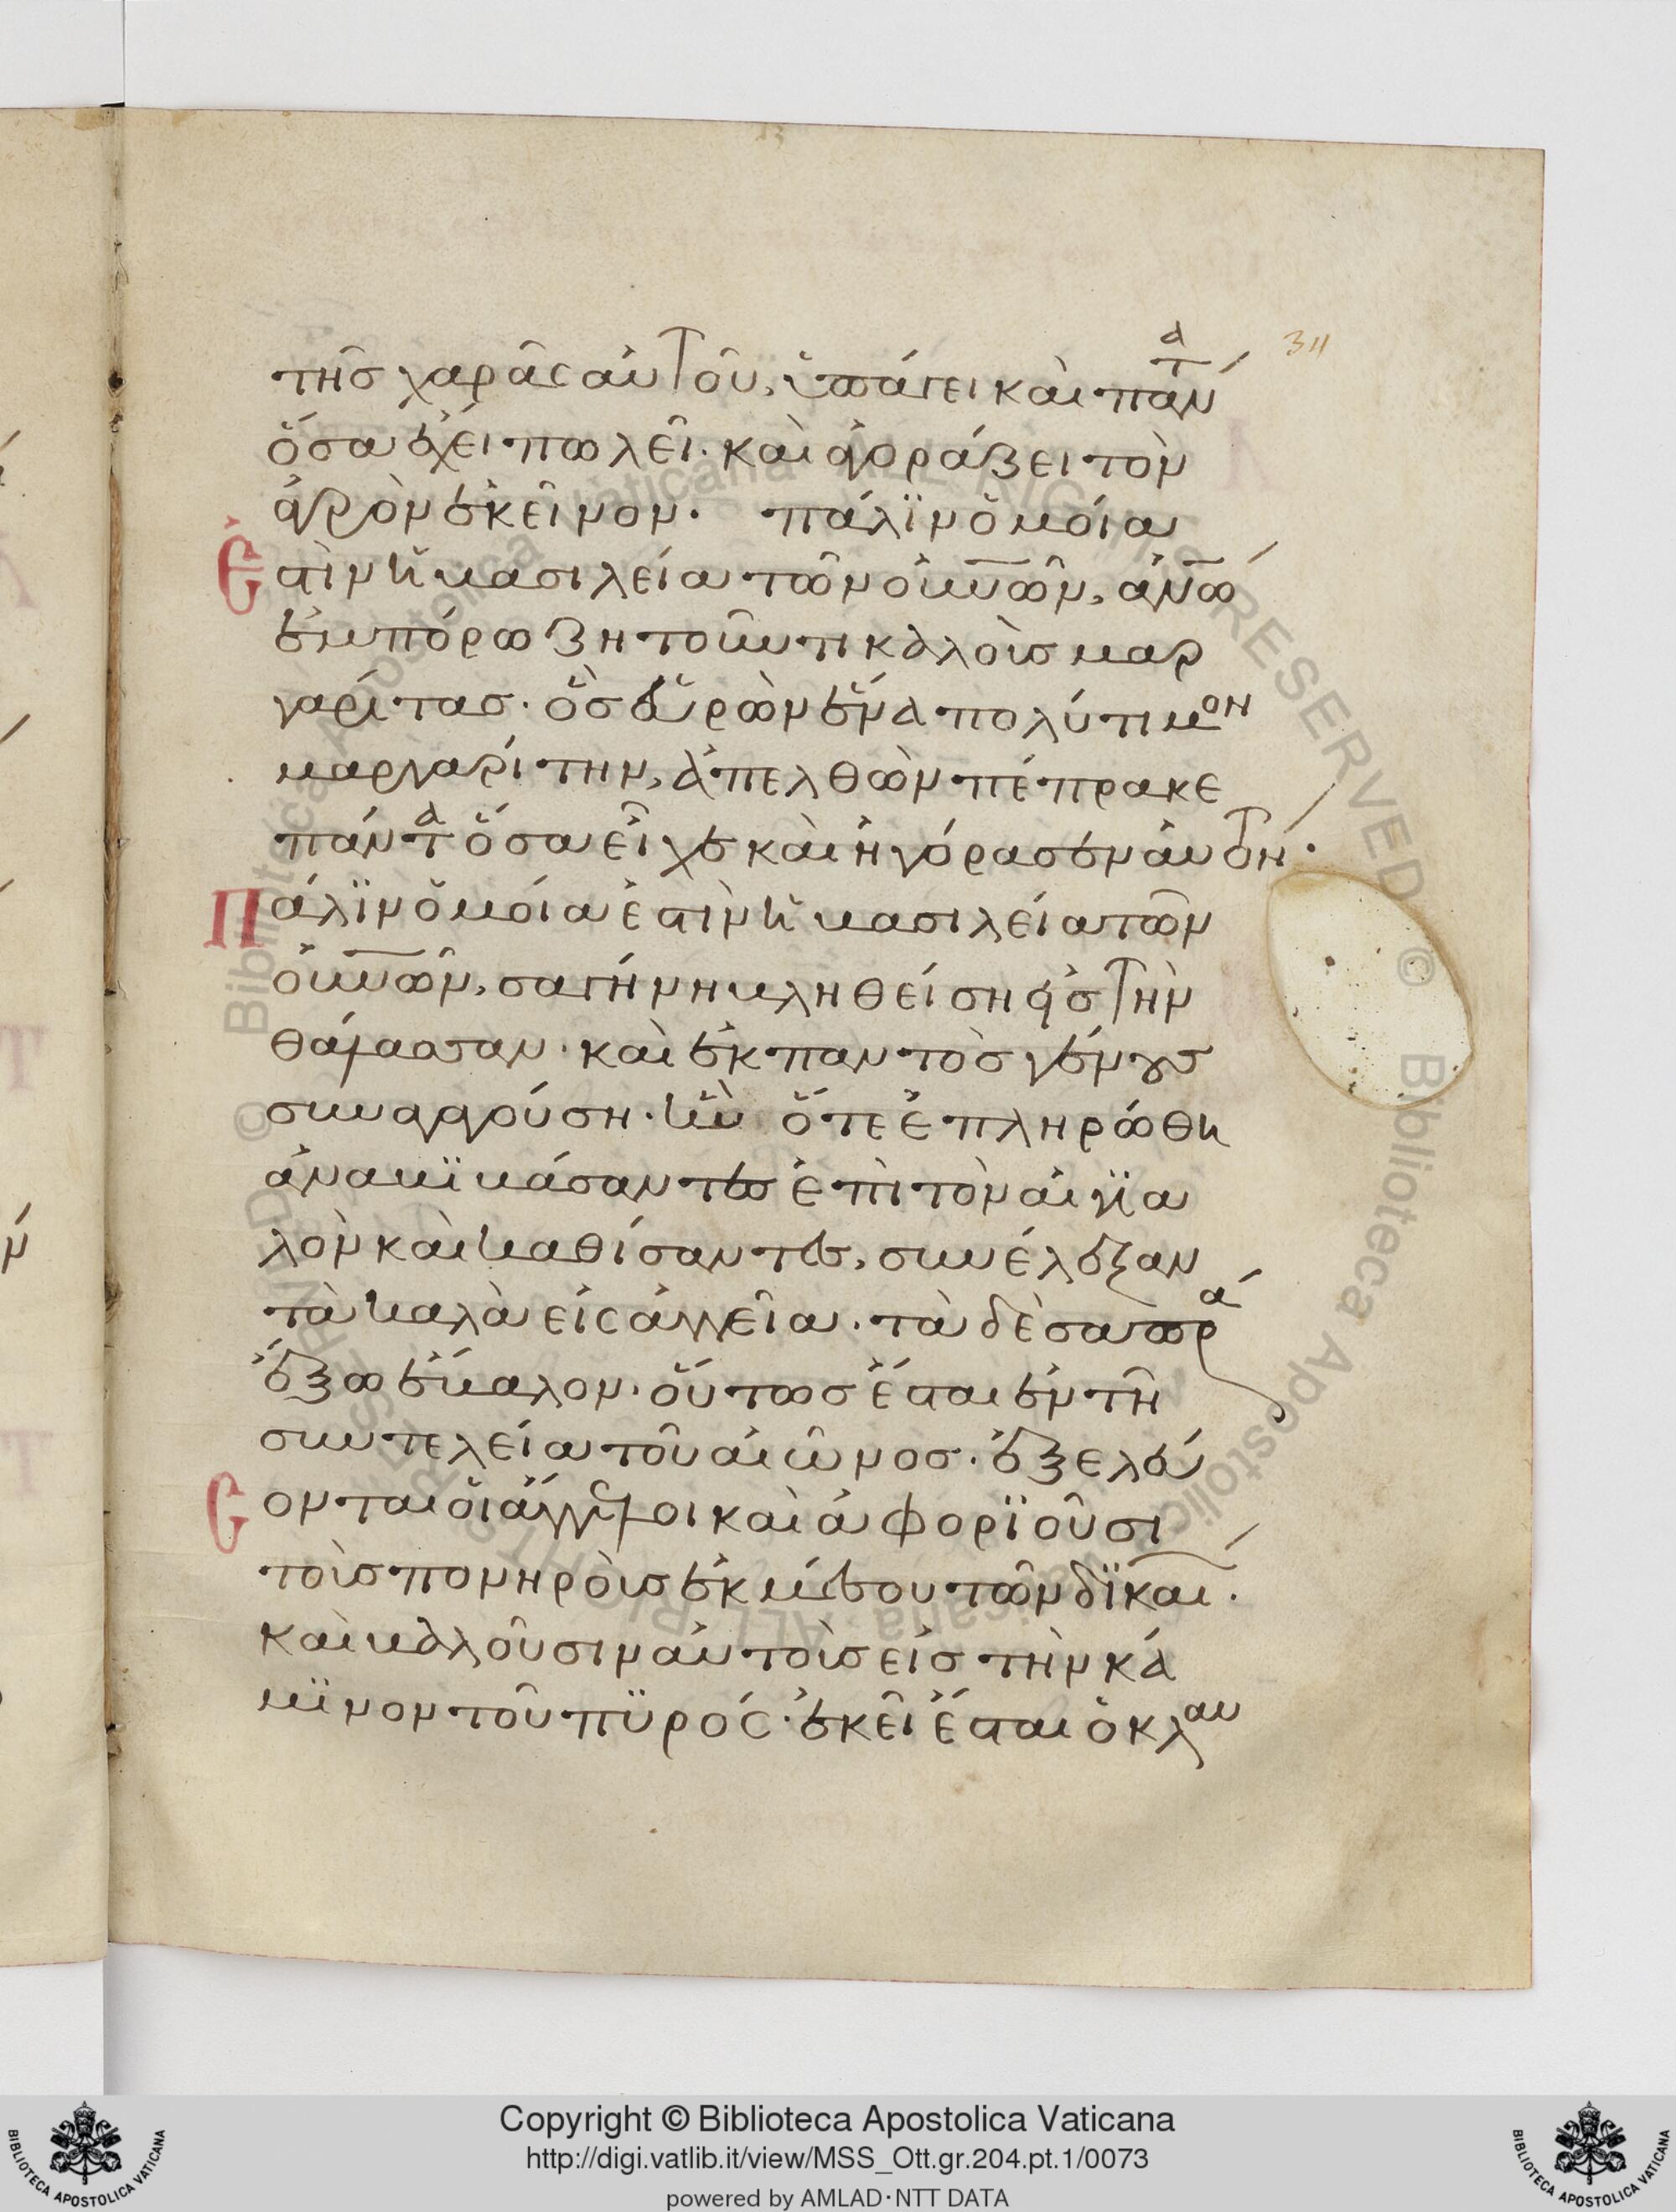 34
τῆς χαρᾶς αὐτοῦ, ὑπάγει καὶ πάντα
ὅσα ἔχει πωλεῖ· καὶ ἀγοράζει τὸν
ἀγρὸν ἐκεῖνον· πάλϊν ὁμοία
ἐστὶν ἡ βασιλεία τῶν οὐνῶν, ἀνω
ἐμπόρω ζητοῦντι καλοὺς μαρ
γαρίτας· ὃς εὑρὼν ἕνα πολύτιμον
μαργαρίτην, ἀπελθὼν πέπρακε
πάντα ὅσα εἶχε καὶ ἠγόρασεν αὐτόν·
Πάλϊν ὁμοία ἐστὶν ἡ βασιλεία τῶν
οὐνῶν, σαγήνη βληθείση εἰς τὴν
θάλασσαν· καὶ ἐκ παντὸς γένους
συναγαγούση· ἣν ὅτε ἐπληρώθη
ἀναβϊβάσαντες ἐπὶ τὸν αἰγϊα
λὸν καὶ καθίσαντες, συνέλεξαν
τὰ καλὰ εἰς ἀγγεῖα· τὰ δὲ σαπρά
ἔξω ἔβαλον· οὕτως ἔσται ἐν τῆ
συντελεία τοῦ αἰῶνος· ἐξελεύ
σονται οἱ ἄγγελοι καὶ ἀφορϊοῦσι
τοὺς πονηροὺς ἐκ μέσου τῶν δϊκαί·
καὶ βαλοῦσιν αὐτοὺς εἰς τὴν κά
μϊνον τοῦ πϋρός· ἐκεῖ ἔσται ὁ κλαυ
Copyright © Biblioteca Apostolica Vaticana
http://digi.vatlib.it/view/MSS_Ott.gr.204.pt.1/0073
powered by AMLAD·NTT DATA
BIBLIOTECA APOSTOLICA VATICANA
BIBLIOTECA APOSTOLICA VATICANA